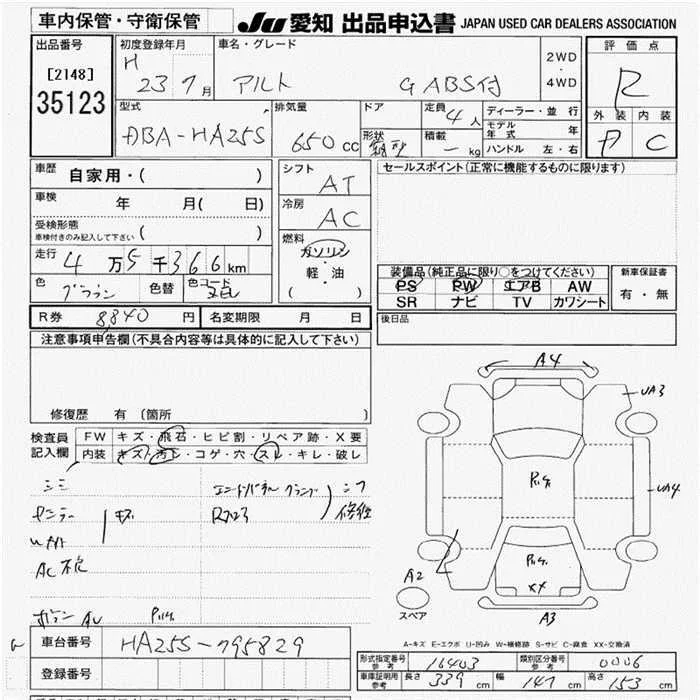 車内保管・守衛保管 JU 愛知 出品申込書 JAPAN USED CAR DEALERS ASSOCIATION
出品番号 初度登録年月 車名・グレード 2WD ・ 4WD 評価点
[2148] H 23 7月 アルト G ABS付 R
35123 型式 排気量 ドア 定員 4人 ディーラー・並行 外装 内装
DBA-HA25S 650cc 形状 積載 - kg モデル年式 年 C
ハンドル 左・右
車歴 自家用・( ) シフト AT セールスポイント(正常に機能するものに限ります)
車検 年 月( 日) 冷房 AC
受検形態 ( )
車検付きのみ記入して下さい
走行 4万5千366km 燃料 ガソリン 軽・油 ( ) 装備品(純正品に限り○をつけてください) 新車保証書
色 色替 色コード PS PW エアB AW 有・無
SR ナビ TV カワシート
R券 8,840円 名変期限 月 日 後日品
注意事項申告欄(不具合内容等は具体的に記入して下さい)
修復歴 有 (箇所 )
検査員記入欄 FW キズ・飛石・ヒビ割・リペア跡・X要
内装 キズ・汚レ・コゲ・穴・スレ・キレ・破レ
A4
UA3
シミ
R7123 修経
キズ
UA4
AC不良
A2
スペア
XX
A3
A-キズ E-エクボ U-凹み W-補修跡 S-サビ C-腐食 XX-交換済
車台番号 HA25S-795829
形式指定番号 参考 16403 類別区分番号 参考 0006
登録番号 車庫証明用 参考 長さ 339cm 幅 147cm 高さ 153cm